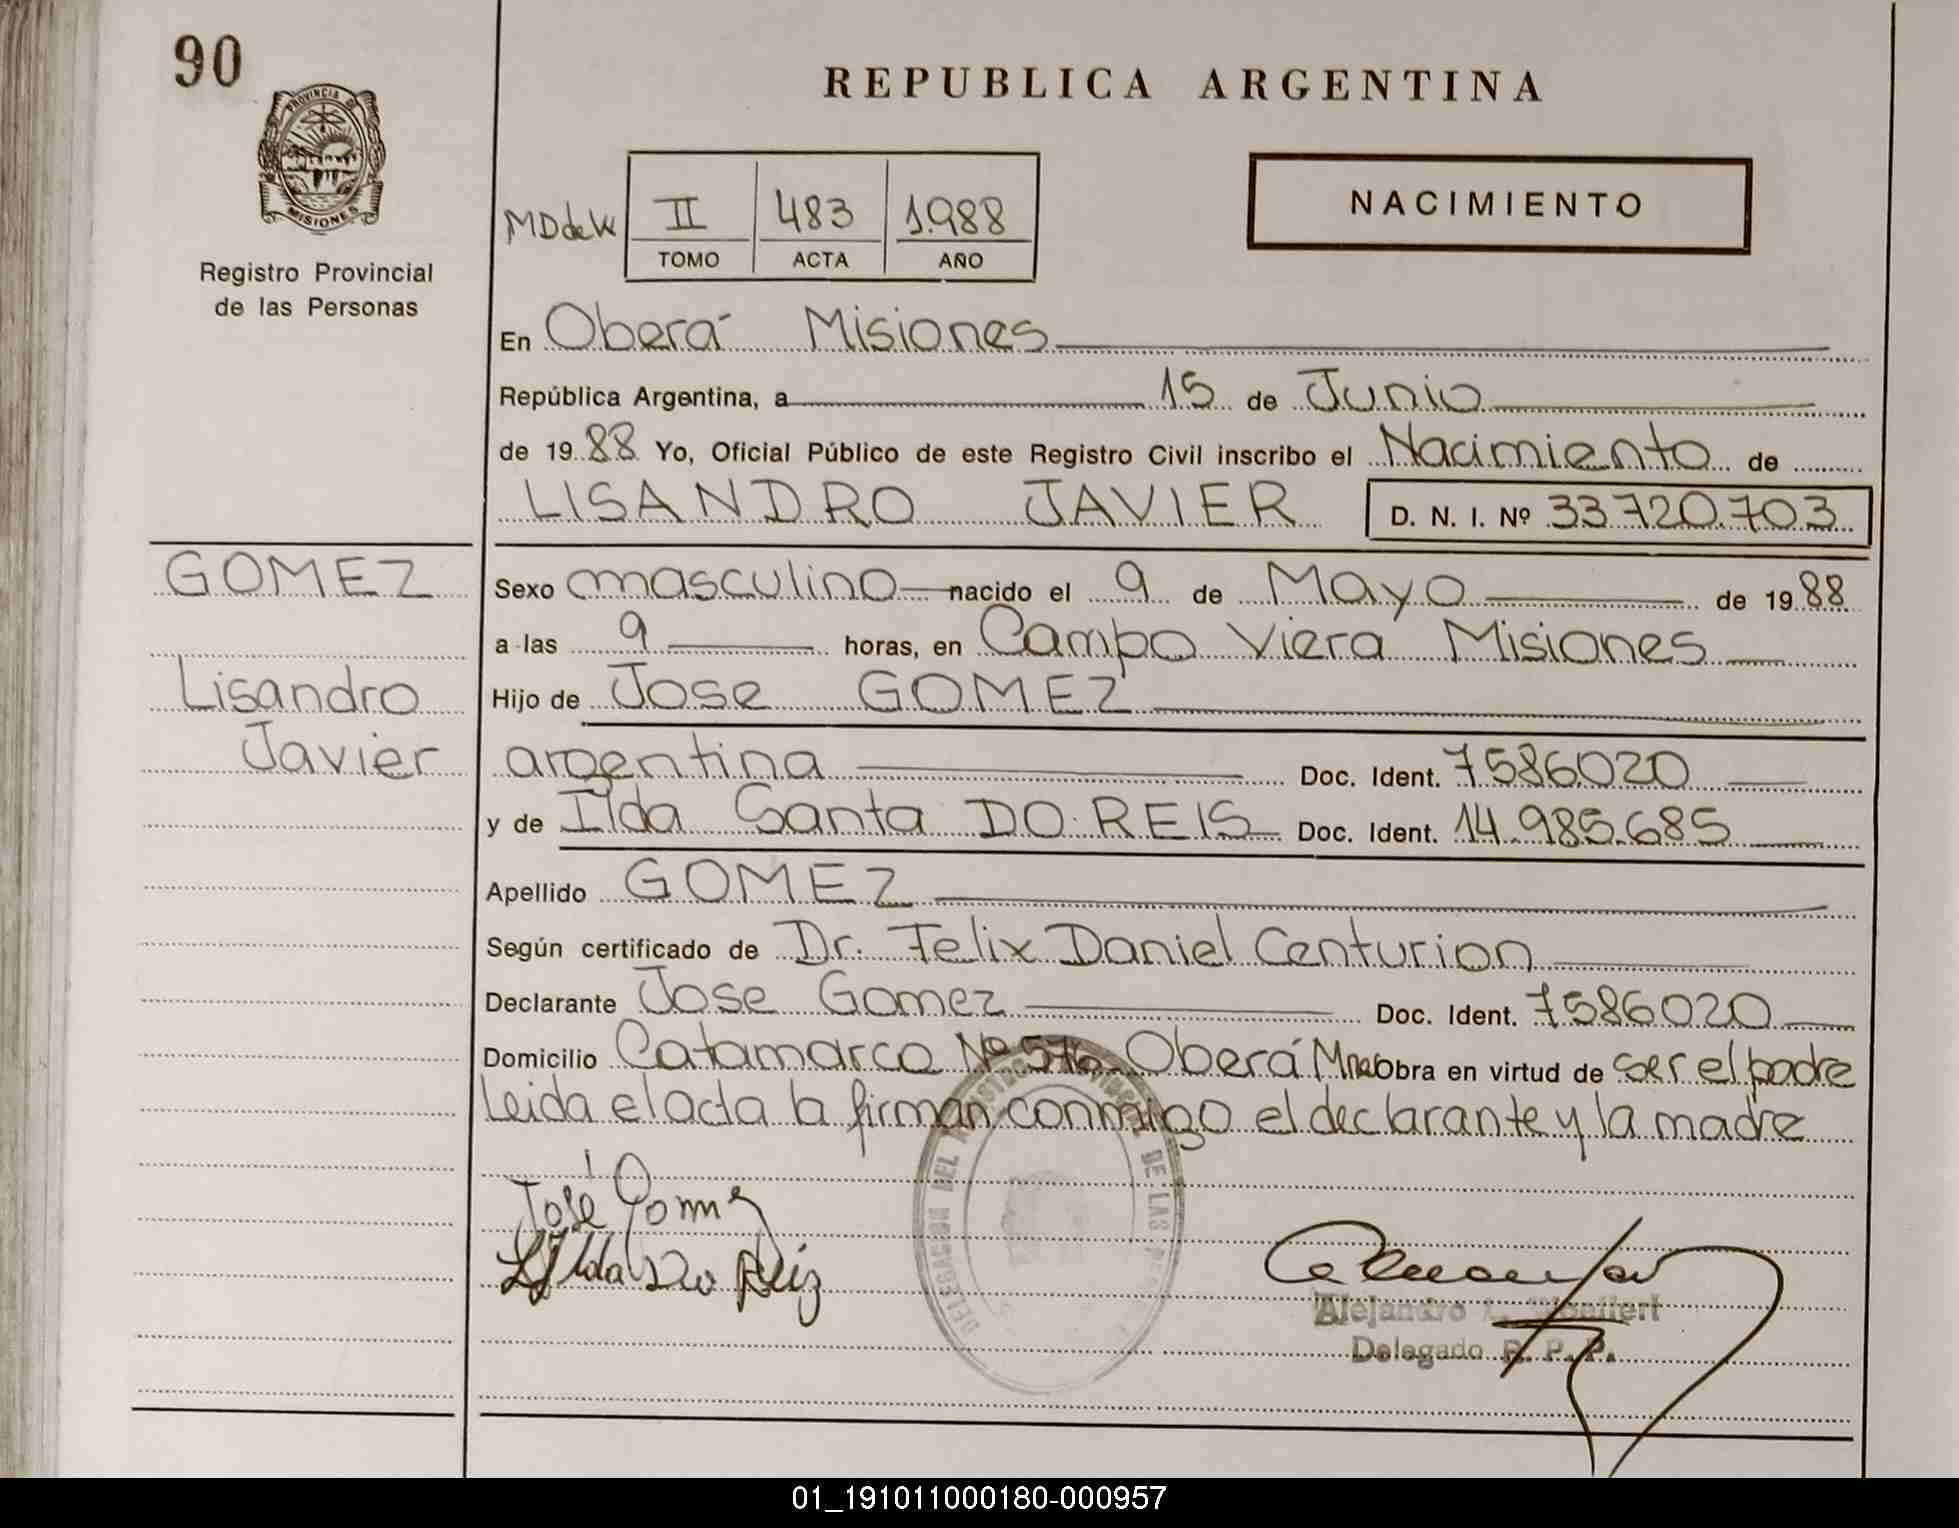 90
PROVINCIA DE
MISIONES
Registro Provincial
de las Personas
REPUBLICA ARGENTINA
MDdeW
II 483 1.988
TOMO ACTA AÑO
NACIMIENTO
En Oberá Misiones
República Argentina, a 15 de Junio
de 19 88 Yo, Oficial Público de este Registro Civil inscribo el Nacimiento de
LISANDRO JAVIER D. N. I. Nº 33.720.703
GOMEZ
Lisandro
Javier
Sexo masculino nacido el 9 de Mayo de 19 88
a las 9 horas, en Campo Viera Misiones
Hijo de Jose GOMEZ
argentina Doc. Ident. 7586020
y de Ilda Santa DO REIS Doc. Ident. 14.985.685
Apellido GOMEZ
Según certificado de Dr. Felix Daniel Centurion
Declarante Jose Gomez Doc. Ident. 7586020
Domicilio Catamarca Nº 576 Oberá Mnes Obra en virtud de ser el padre
Leida el acta la firman conmigo el declarante y la madre
José Gomez
Ilda Do Reiz
DELEGACION DEL REGISTRO PROVINCIAL DE LAS
Alejandro
Delegado R. P. P.
01_191011000180-000957